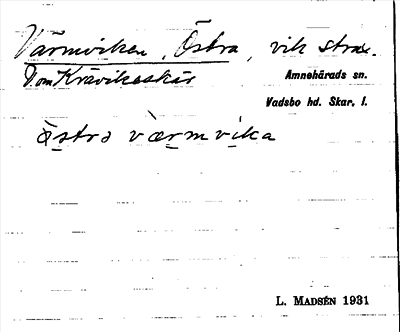 Värmviken, Östra, vik strax
V om Kråvikeskär
Amnehärads sn.
Vadsbo hd. Skar. l.
östra värmvika
L. MADSÉN 1931